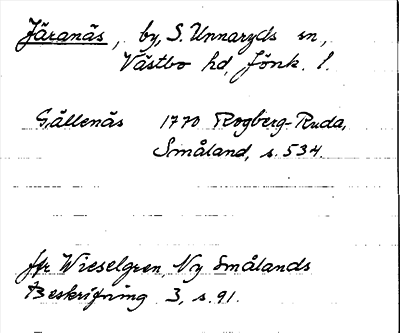 Järanäs, by, S. Unnaryds sn,
Västbo hd, Jönk. l.
Gällenäs 1770 Rogberg-Ruda,
Småland, s. 534.
jfr Wieselgren, Ny Smålands
Beskrifning 3, s. 91.